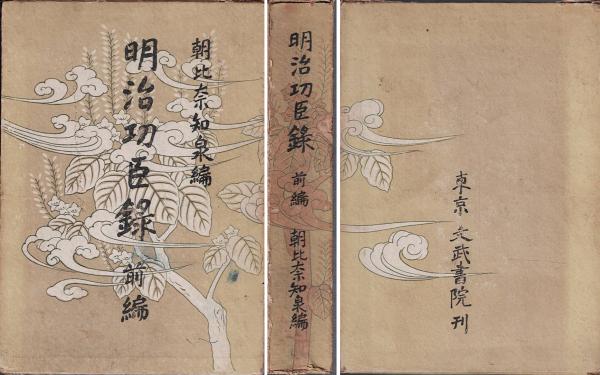 朝比奈知泉編
明治功臣錄 前編
明治功臣錄 前編 朝比奈知泉編
東京 文武書院刊